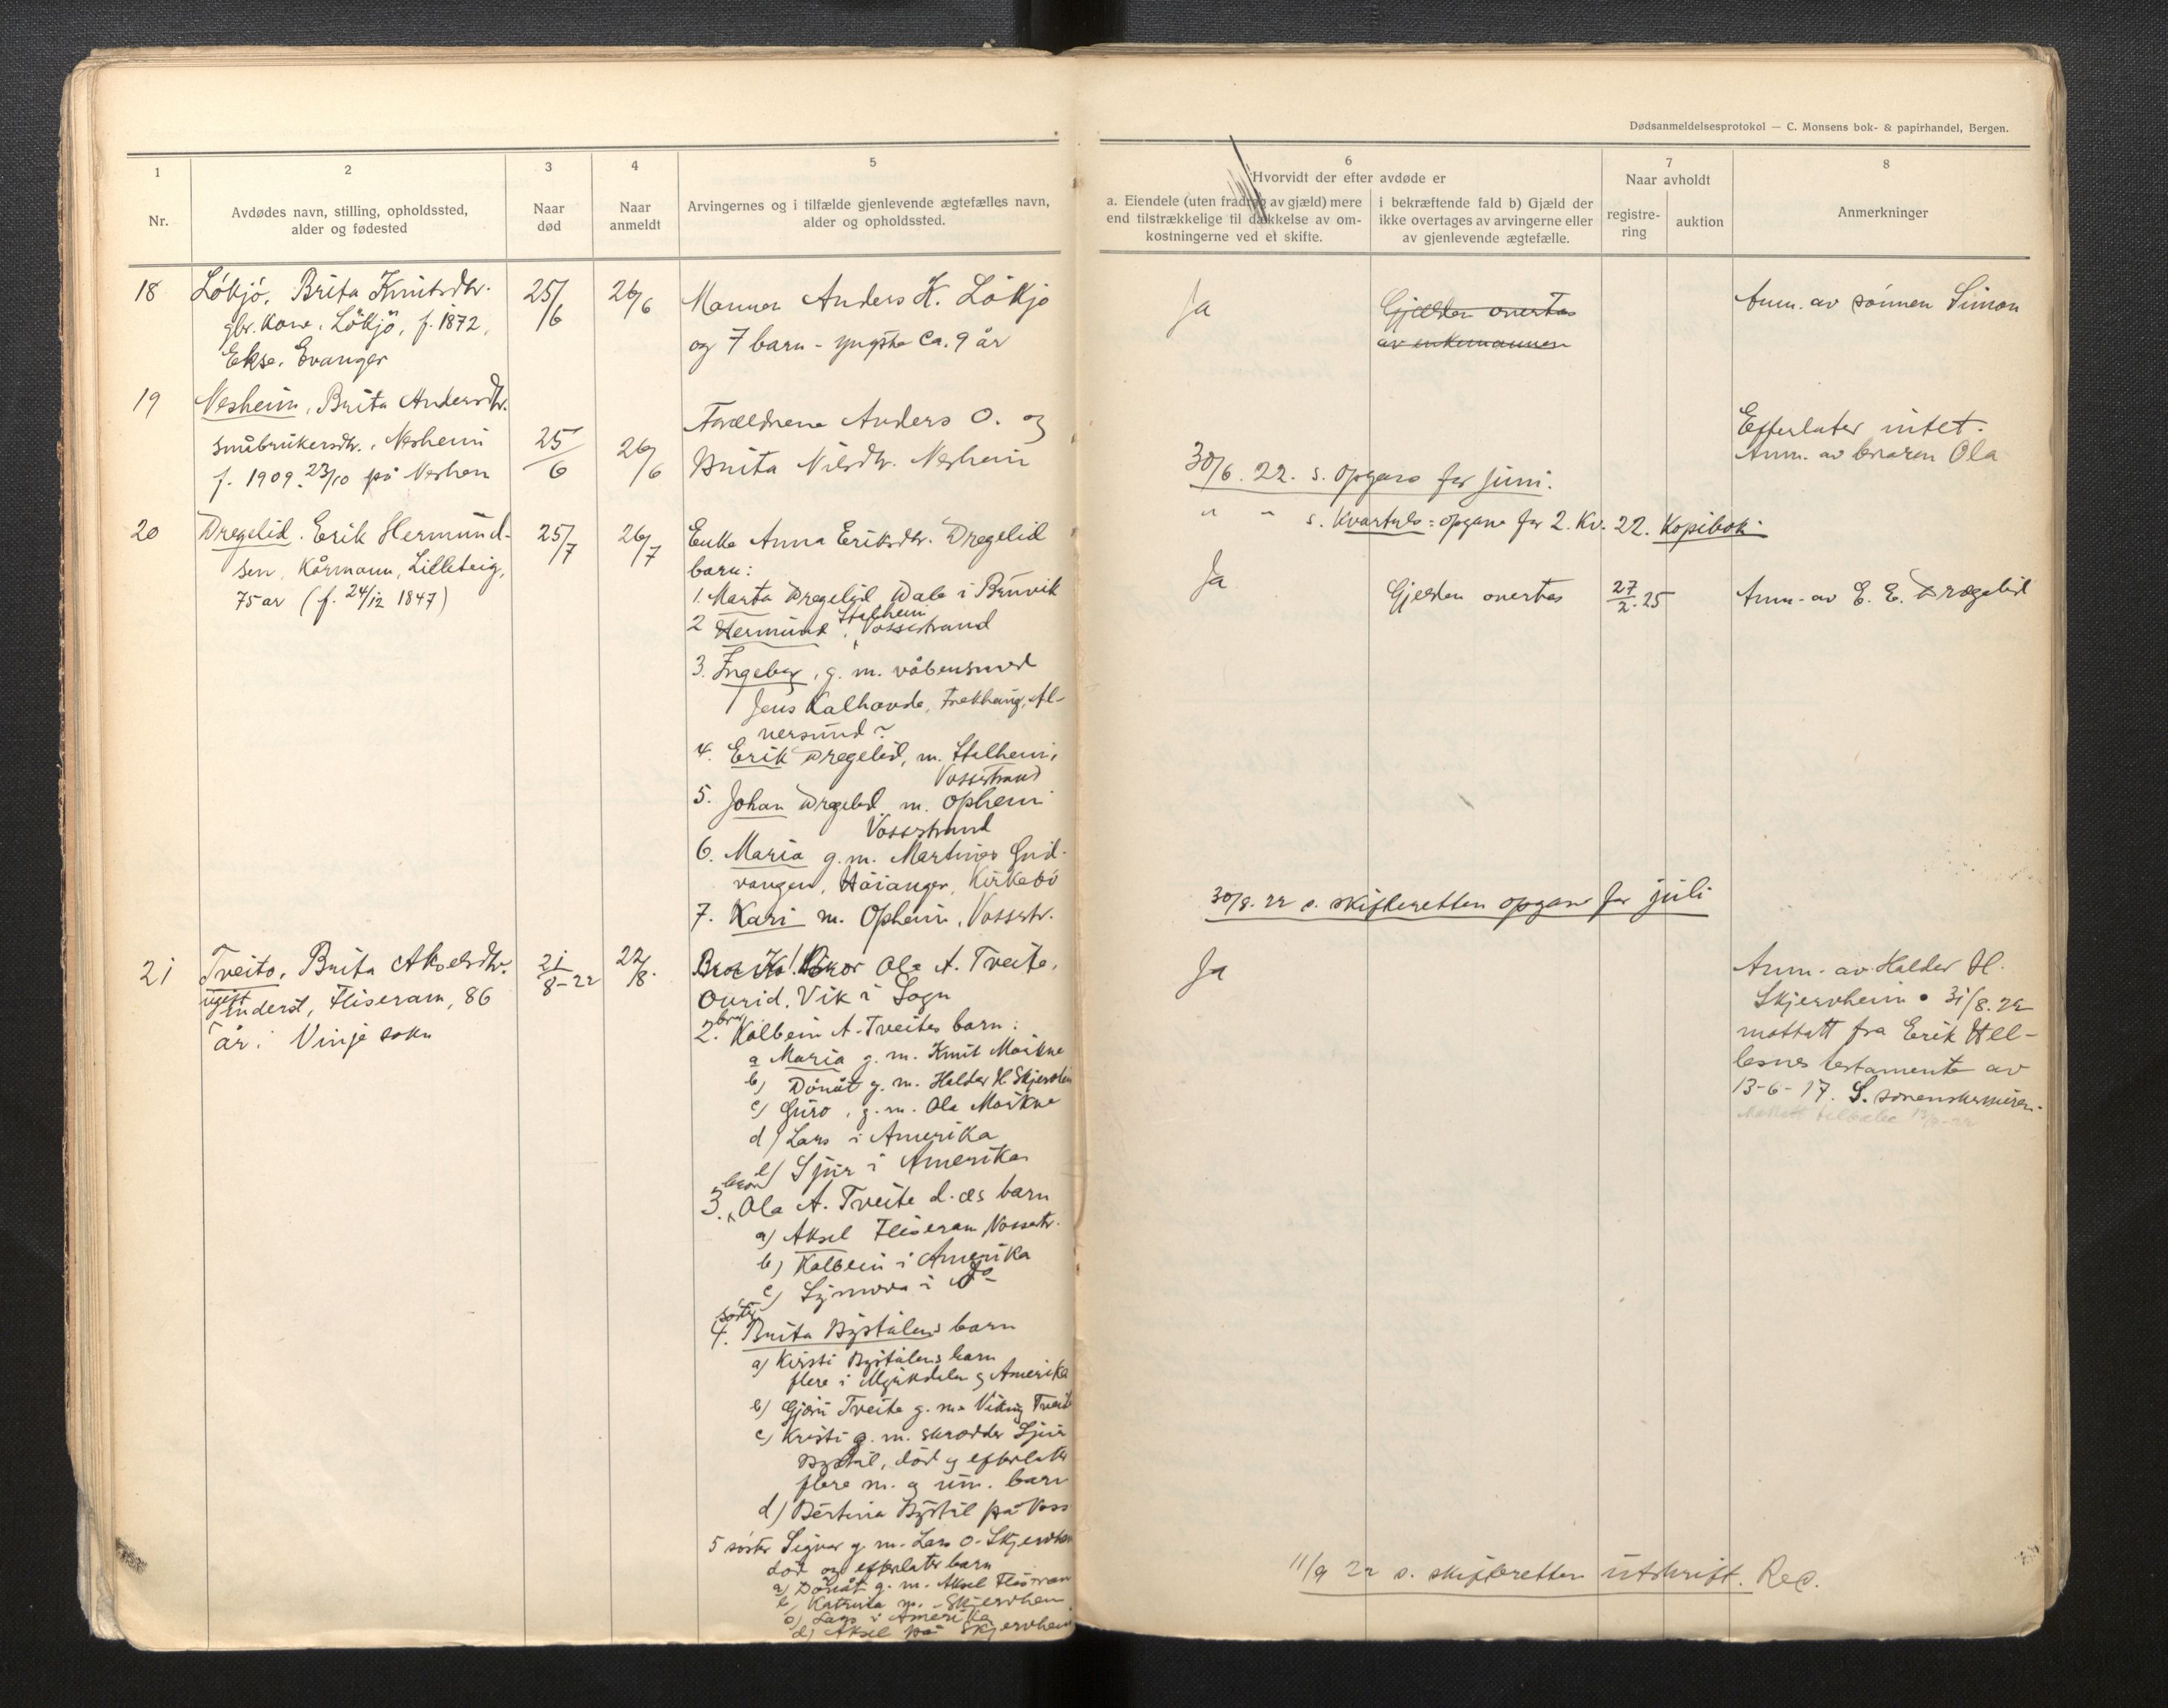 Dødsanmeldelsesprotokol — C. Monsens bok- & papirhandel, Bergen.
1
Nr.
2
Avdødes navn, stilling, opholdssted,
alder og fødested
3
Naar
død
4
Naar
anmeldt
5
Arvingernes og i tilfælde gjenlevende ægtefælles navn,
alder og opholdssted.
6
Hvorvidt der efter avdøde er
a. Eiendele (uten fradrag av gjæld) mere
end tilstrækkelige til dækkelse av om-
kostningerne ved et skifte.
i bekræftende fald b) Gjæld der
ikke overtages av arvingerne eller
av gjenlevende ægtefælle.
7
Naar avholdt
registre-
ring
auktion
8
Anmerkninger
18
Lökjö, Brita Knutsdtr.
gbr. kone, Lökjö, f. 1872,
Ekse, Evanger
25/6
26/6
Mannen Anders K. Lökjö
og 7 barn - yngste ca. 9 år
Ja
Gjelden overtas
av enkemannen
Anm. av sönnen Simon
19
Nesheim, Brita Andersdtr.
småbrukersdtr., Nesheim
f. 1909 23/10 på Neshem
25/6
26/6
Forældrene Anders O. og
Brita Nilsdtr. Neshein
Efterlater intet.
Anm. av broren Ola
30/6. 22. s. opgave for juni.
" " s. Kvartals=opgave for 2. Kv. 22. Kopibok
20
Dregelid. Erik Hermund-
sen, Kårmann, Lilleteig,
75 år (f. 24/12 1847)
25/7
26/7
Enke Anna Eriksdtr. Dregelid
barn:
1. Marta Dregelid Dale i Bruvik
2 Hermund, Stalheim Vossestrand
3. Ingeborg, g. m. våbensmed
Jens Kalhovde, Frekhaug, Al-
versund
4. Erik Dregelid, m. Stalheim,
Vossestrand
5. Johan Dregelid m. Opheim
Vossestrand
6. Maria g. m. Martines Gud-
vangen, Höianger, Kirkebö
7. Kari m. Opheim, Vossestr.
Ja
Gjelden overtas
27/2.25
Anm. av E. E. Dregelid
30/8. 22 s. skifteretten opgave for juli
21
Tveito, Brita Akselsdtr.
ugift
inderst, Fliseram, 86
år. Vinje sokn
21/8-22
22/8.
Bror Ola A. Tveite,
Ovrid, Vik i Sogn
2. bror Kolbein A. Tveites barn:
a Maria g. m. Knut Mörkve
b) Dönåt g. m. Haldor H. Skjervhein
c) Guro, g. m. Ola Mörkve
d) Lars i Amerika
e) Sjur i Amerika
3. bror Ola A. Tveite d. æs barn
a) Aksel Fliseram Vossestr.
b) Kolbein i Amerika
c) Synnøva i do
4. söster Brita Bystölens barn
a) Kirsti Bystölens barn
flere i Myrkdalen og Amerika
b) Gjöri Tveite g. m. Viking Tveite
c) Kristi g. m. skrædder Sjur
Bystöl, död og efterlater
flere m. og um. barn
d) Bertina Bystöl på Voss
5 söster Signor g. m. Lars O. Skjervhein
död og efterlater barn
a) Dönåt g. m. Aksel Fliseram
b) Katrina m. Skjervhem
c) Lars i Amerika
d) Aksel på Skjervhem
Ja
Anm. av Haldor H.
Skjervheim. 31/8. 22
mottatt fra Erik Hel-
lesnes testamente av
13-6-17. S. sorenskriveren.
11/9 22 s. skifteretten utskrift. Rec.